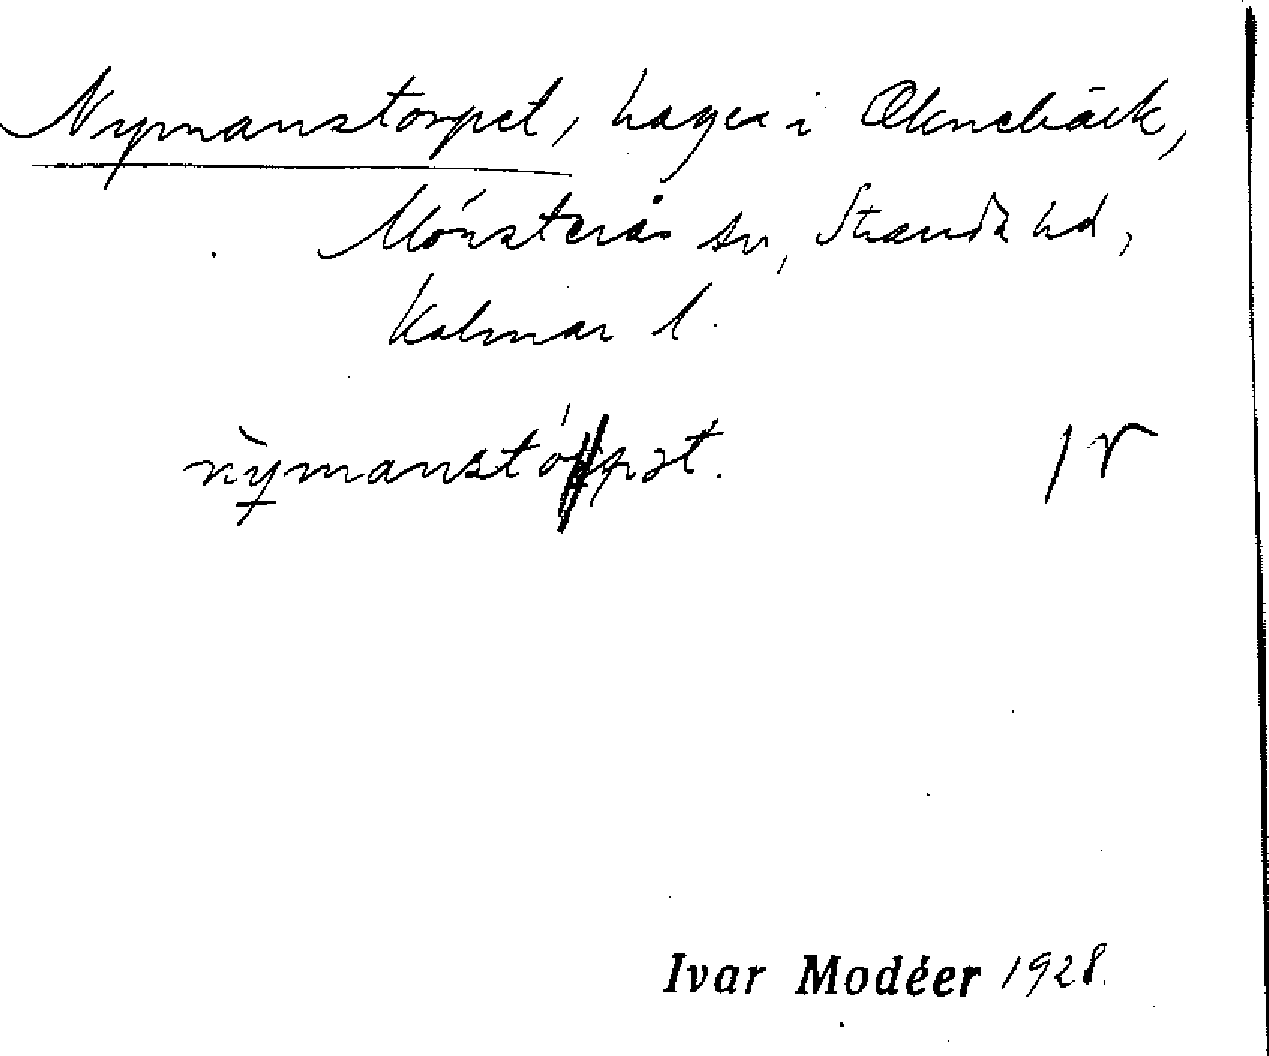 Nymanstorpet, hagen i Oknebäck,
Mönsterås sn, Stranda hd,
Kalmar l.
Ivar Modéer 1928.